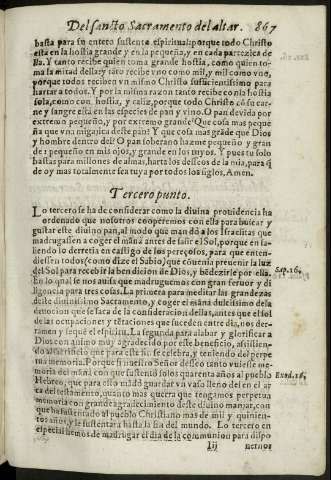 Del sancto Sacramento del altar. 867
basta para su entero sustento espiritual: porque todo Christo
està en la hostia grande y en la pequeña, y en cada partezica de
lla. Y tanto recibe quien toma grande hostia, como quien to-
ma la mitad della: y assi recibe vno como mil, y mil como vno,
porque todos reciben vn mismo Christo suficientissimo para
hartar a todos. Y por la misma razon tanto recibe cō la hostia
sola, como con hostia, y caliz, porque todo Christo cō su car-
ne y sangre està en las especies de pan y vino. O pan de vida por
extremo pequeño, y por extremo grande! Que cosa mas peque
ña que vna migagica deste pan? Y que cosa mas grāde que Dios
y hombre dentro del? O pan soberano hazme pequeño y gran
de: pequeño en mis ojos, y grande en los tuyos. Y pues tu solo
bastas para millones de almas, harta los desseos de la mia, para q̄
de oy mas totalmente sea tuya por todos los siglos, Amen.
Tercero punto.
Lo tercero se ha de considerar como la diuina prouidencia ha
ordenado que nosotros cooperemos con ella para buscar y
gustar este diuino pan, al modo que mandò a los Israelitas que
madrugassen a coger el manà antes de salir el Sol, porque en sa-
liendo lo derretia en castigo de los pereçosos, para que enten-
diessen todos (como dize el Sabio) que conuenia preuenir la luz
del Sol para recebir la bendicion de Dios, y bēdezirle por ella.
Sap. 16.
En lo qual se nos auisa que madruguemos con gran feruor y di
ligencia para tres cosas. La primera para meditar las grandezas
deste diuinissimo Sacramento, y coger el manà dulcissimo de la
deuocion que se saca de la consideracion dellas, antes que el sol
de las ocupaciones y tētaciones que suceden entre dia, nos der-
ramen y seque el espiritu. La segunda para alabar y glorificar a
Dios con animo muy agradecido por este beneficio, assistien-
do al sacrificio que para este fin se celebra, y teniendo del perpe
tua memoria. Porque si nuestro Señor desseò tanto vuiesse me-
moria del manà con que sustentò solos quarenta años al pueblo
Exod. 16.
Hebreo, que para esso mādò guardar vn vaso lleno del en el ar
ca del testamento, quanto mas querra que tengamos perpetua
memoria con grande agradecimiento deste diuino manjar, con
que ha sustentado al pueblo Christiano mas de mil y quinien-
tos años, y le sustentarà hasta la fin del mundo. Lo tercero en
especial hemos de madrugar el dia de la comunion para dispo
Iij nernos